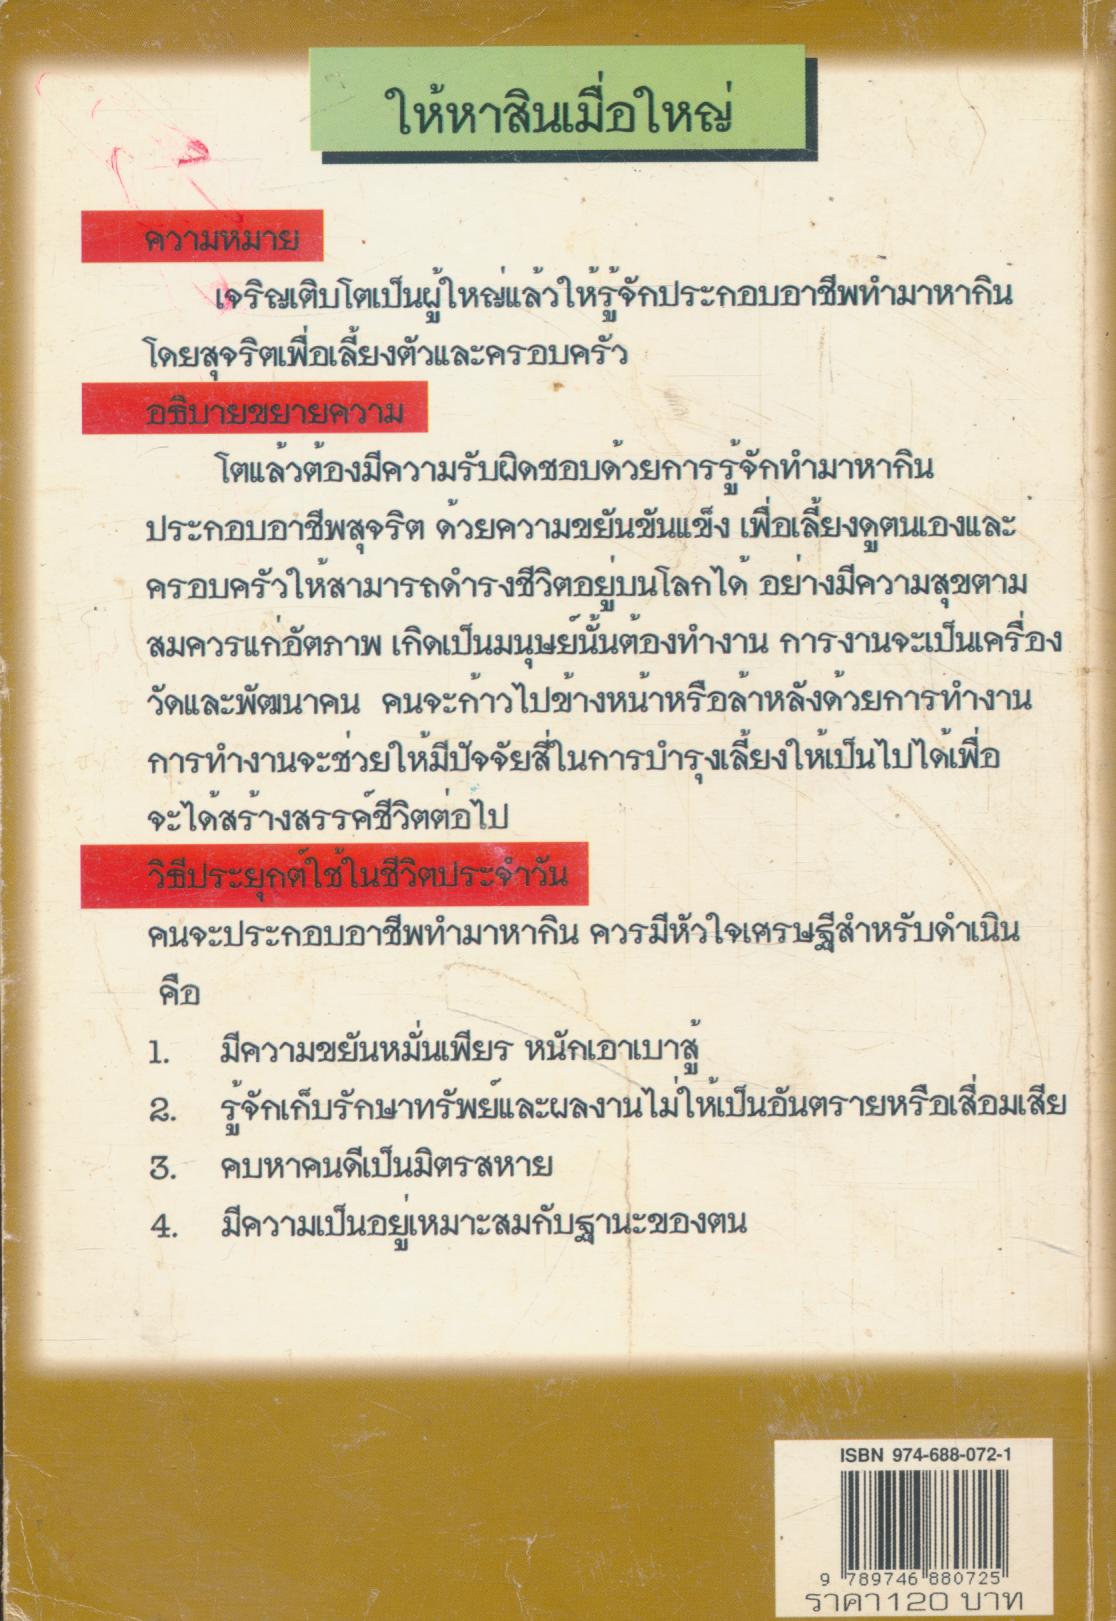 ให้หาสินเมื่อใหญ่
ความหมาย
เจริญเติบโตเป็นผู้ใหญ่แล้วให้รู้จักประกอบอาชีพทำมาหากิน
โดยสุจริตเพื่อเลี้ยงตัวและครอบครัว
อธิบายขยายความ
โตแล้วต้องมีความรับผิดชอบด้วยการรู้จักทำมาหากิน
ประกอบอาชีพสุจริต ด้วยความขยันขันแข็ง เพื่อเลี้ยงดูตนเองและ
ครอบครัวให้สามารถดำรงชีวิตอยู่บนโลกได้ อย่างมีความสุขตาม
สมควรแก่อัตภาพ เกิดเป็นมนุษย์นั้นต้องทำงาน การงานจะเป็นเครื่อง
วัดและพัฒนาคน คนจะก้าวไปข้างหน้าหรือล้าหลังด้วยการทำงาน
การทำงานจะช่วยให้มีปัจจัยสี่ในการบำรุงเลี้ยงให้เป็นไปได้เพื่อ
จะได้สร้างสรรค์ชีวิตต่อไป
วิธีประยุกต์ใช้ในชีวิตประจำวัน
คนจะประกอบอาชีพทำมาหากิน ควรมีหัวใจเศรษฐีสำหรับดำเนิน
คือ
1. มีความขยันหมั่นเพียร หนักเอาเบาสู้
2. รู้จักเก็บรักษาทรัพย์และผลงานไม่ให้เป็นอันตรายหรือเสื่อมเสีย
3. คบหาคนดีเป็นมิตรสหาย
4. มีความเป็นอยู่เหมาะสมกับฐานะของตน
ISBN 974-688-072-1
9 789746 880725
ราคา 120 บาท